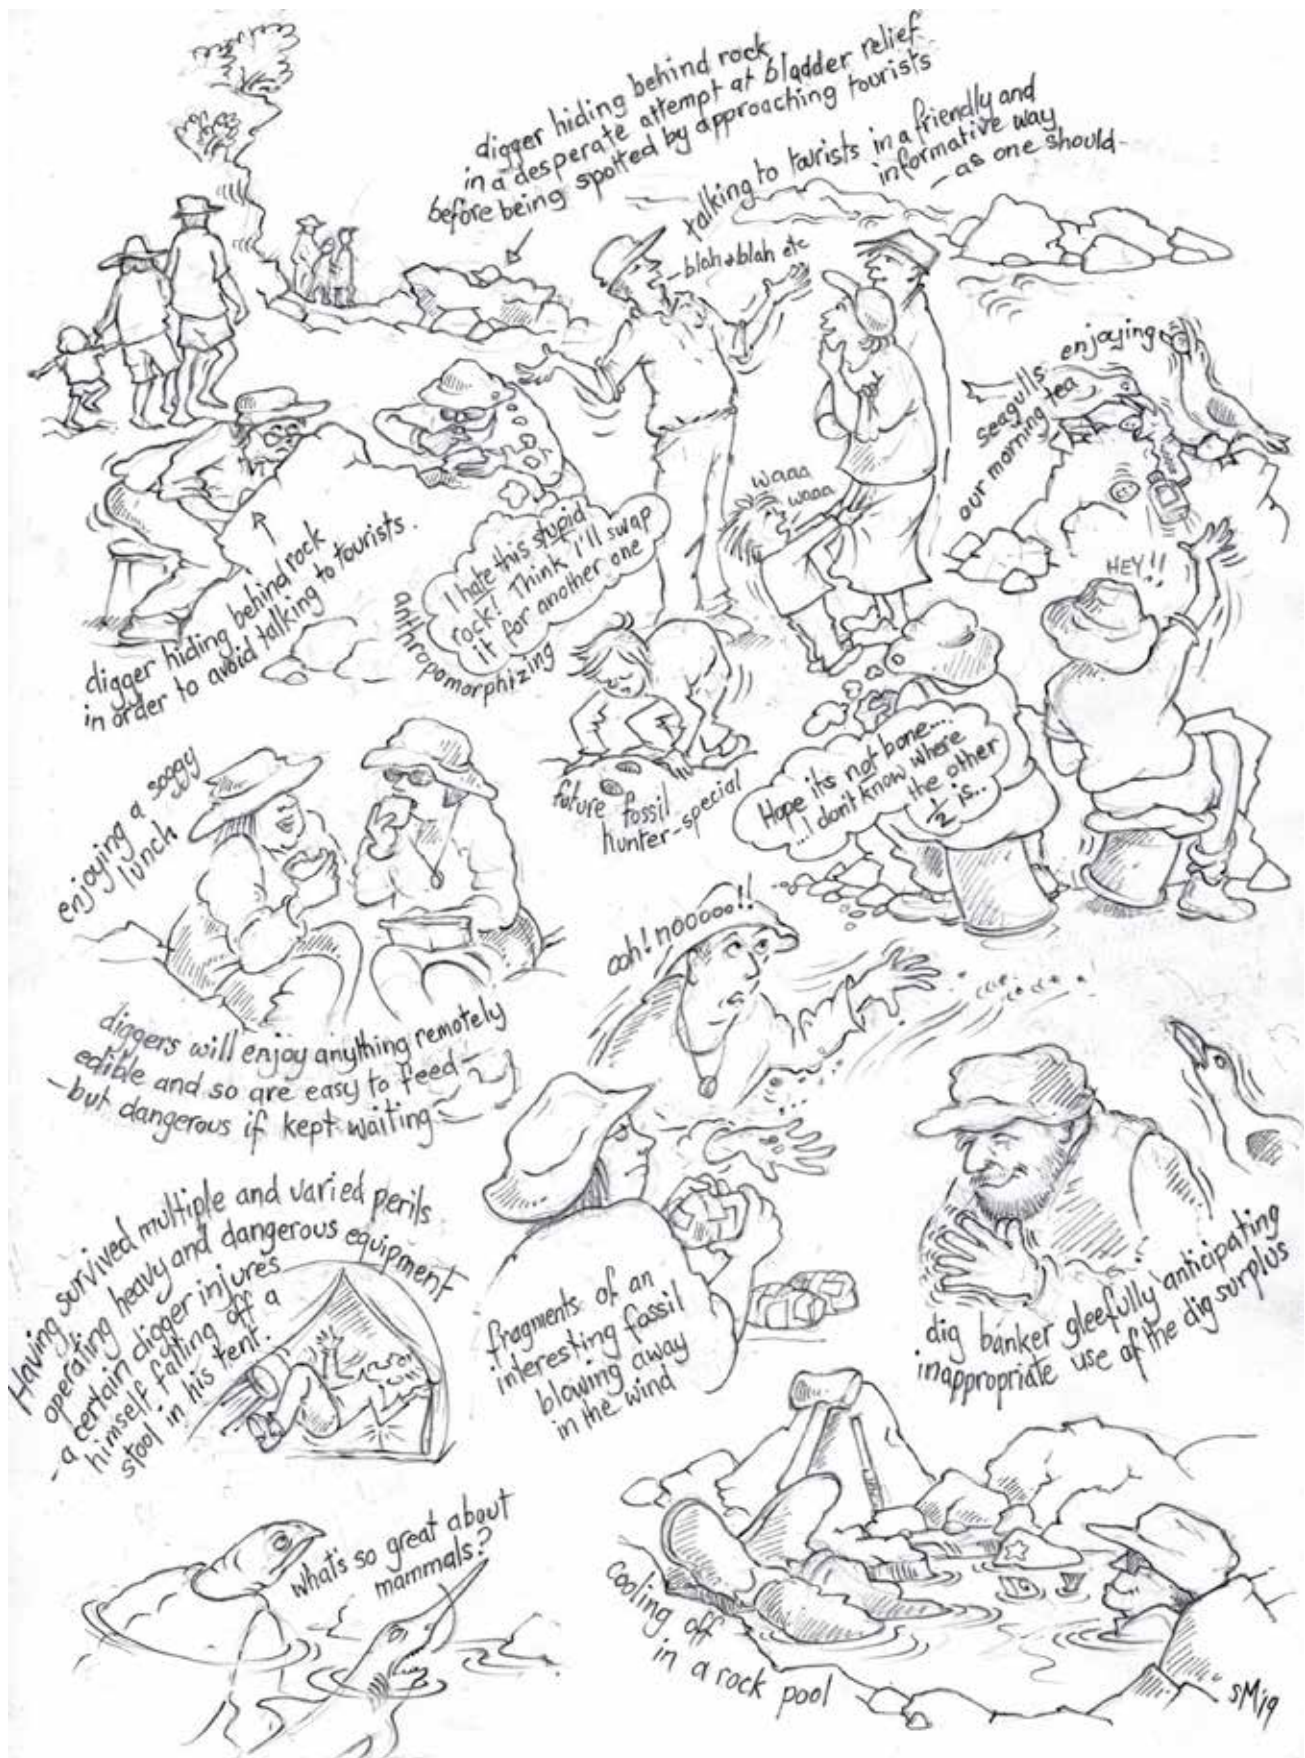 digger hiding behind rock
in a desperate attempt at bladder relief
before being spotted by approaching tourists
talking to tourists in a friendly and
informative way
- as one should -
- blah blah etc
seagulls enjoying
our morning tea
HEY!!
waaa
waaa
digger hiding behind rock
in order to avoid talking to tourists.
I hate this stupid
rock! Think I'll swap
it for another one
anthropomorphizing
future fossil
hunter-special
Hope its not bone....
...I don't know where
the other
½ is..
enjoying a soggy
lunch
diggers will enjoy anything remotely
edible and so are easy to feed -
- but dangerous if kept waiting -
ooh! nooooo!!
Having survived multiple and varied perils
operating heavy and dangerous equipment
- a certain digger injures
himself falling off a
stool in his tent.
fragments of an
interesting fossil
blowing away
in the wind
dig banker gleefully anticipating
inappropriate use of the dig surplus
what's so great about
mammals?
cooling off
in a rock pool
SM19